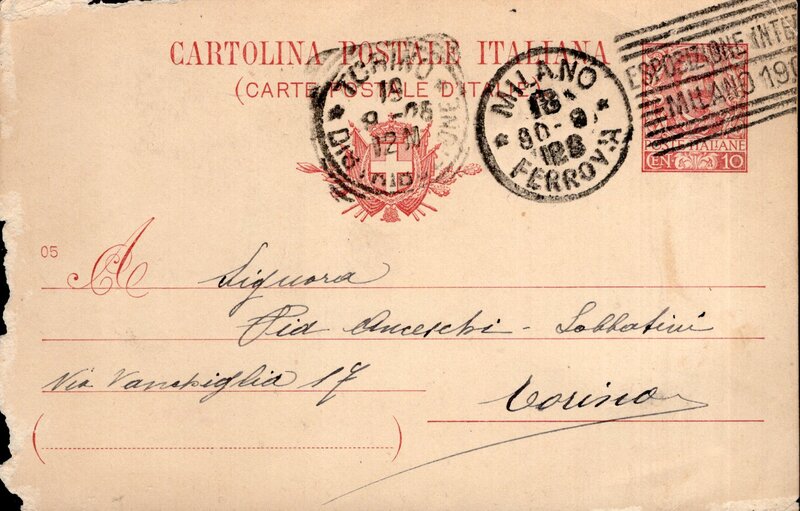 CARTOLINA POSTALE ITALIANA
(CARTE POSTALE D'ITALIE)
TORINO
18
9-05
12M
DISTRIBUZIONE
MILANO
18
FERROVIA
ESPOSIZIONE INTER
MILANO 190
POSTE ITALIANE
CEN. 10
05
A Signora
Pia Anceschi - Sabbatini
Via Vanchiglia 17
Torino